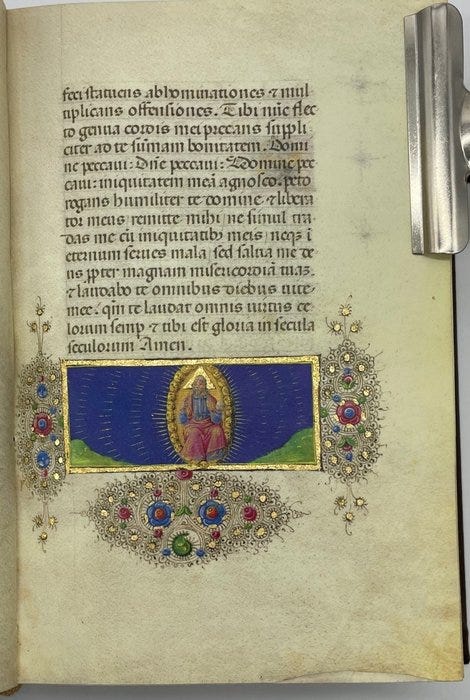 feci statuens abhominationes ⁊ mul
tiplicans offensiones. Tibi nūc flec
to genua cordis mei precans suppli
citer ad te sūmam bonitatem. Domi
ne peccaui: Dn̄e peccaui: Domine pec
caui: iniquitatem meā agnosco. peto
rogans humiliter te domine. ⁊ libera
tor meus remitte mihi ne simul tra
das me cū iniquitatib; meis neq; ī
eternum serues mala sed salua me de
us ꝓpter magnam misericordiā tuaʒ.
⁊ laudabo te omnibus diebus uite
mee. qm̄ te laudat omnis uirtus ce
lorum semp̲ ⁊ tibi est gloria in secula
seculorum Amen.